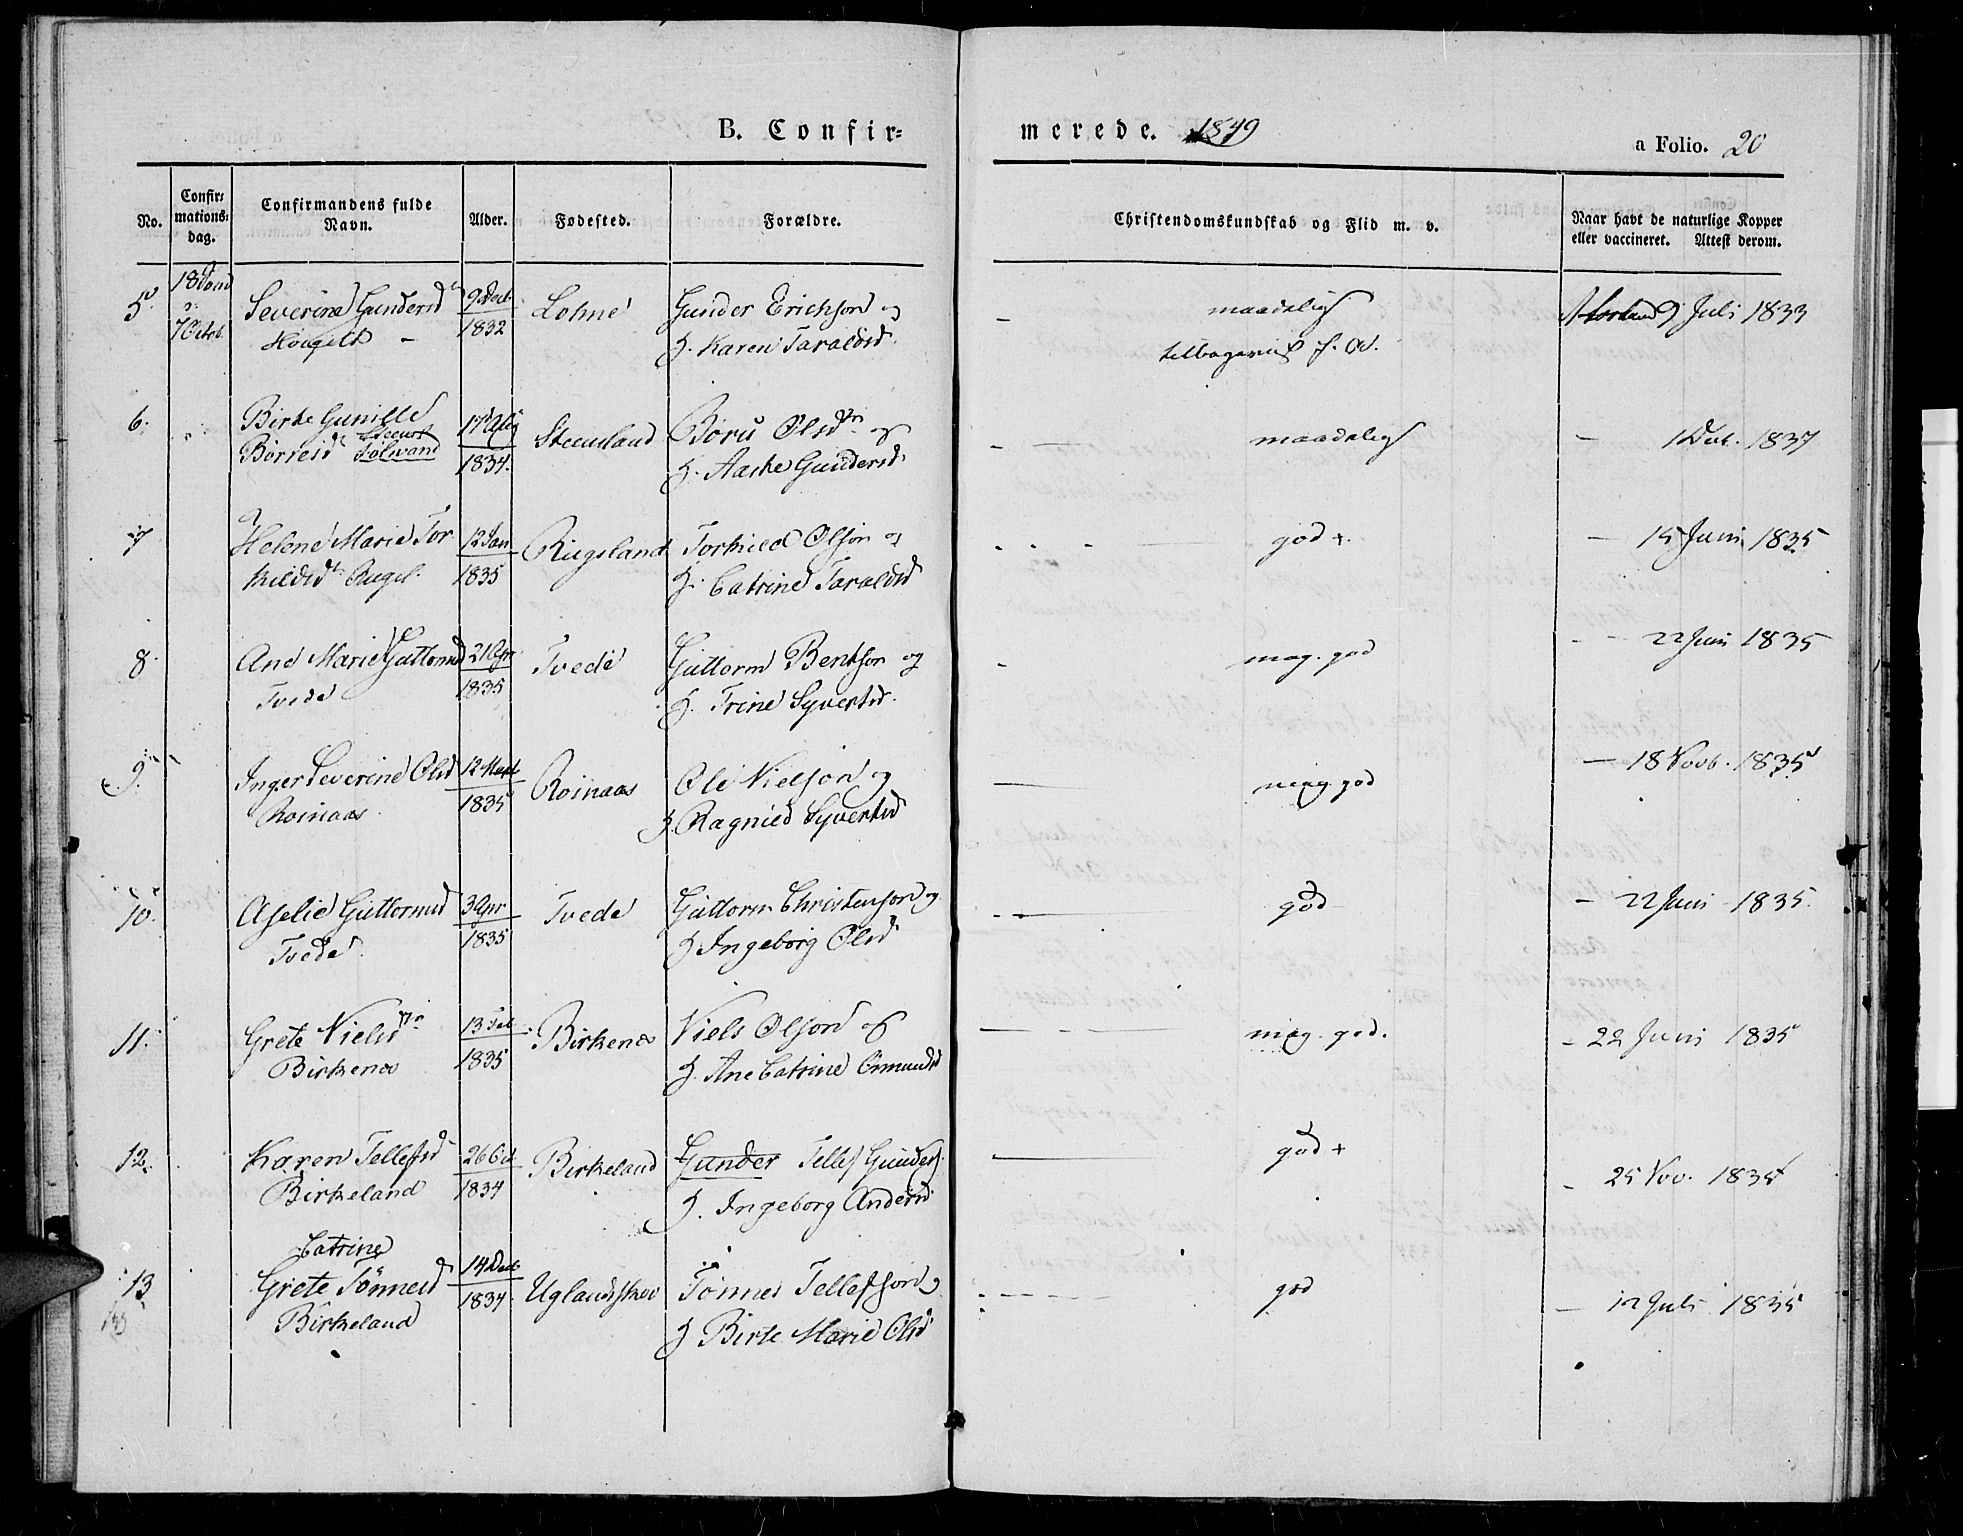 B. Confir=
merede. 1849
a Folio. 20
No.
Confir=
mations=
dag.
Confirmandens fulde
Navn.
Alder.
Fødested.
Forældre.
Christendomskundskab og Flid m. v.
Naar havt de naturlige Kopper
eller vaccineret. Attest derom.
5. 18 Sønd
7 Octob.
Severine Gundersd
9 Dec.
1832
Lohne
Gunder Erichson og
H. Karen Taraldsd.
maadelig
9 Juli 1833
6.
Birte Gunille
Børresd Tolvand
17 Aug
1834.
Steensland
Børe Olsøn og
H. Aaste Gundersd.
maadelig
1 Dec. 1837
7
Helene Marie Tor
kildsd Rugsl.
12 Jan
1835
Rugsland
Torkild Olson og
H. Catrine Taraldsd
god +.
15 Juni 1835
8.
Ane Marie Guttormsd
Tvede
21 Apr.
1835
Tvede
Guttorm Bentson og
H. Trine Syvertsd.
meg. god
22 Juni 1835
9.
Inger Severine Olsd
Roinaas
12 Mart
1835
Roinaas
Ole Nielson og
H. Ragnild Syvertsd
meg. god
18 Novb. 1835
10.
Aselie Guttormsd
Tvede.
3 Apr
1835
Tvede
Guttorm Christenson og
H Ingeborg Olsd
god
22 Juni 1835.
11.
Grete Nielsd
Birkenes
13 Feb
1835
Birkenes
Niels Olson og
H. Ane Catrine Omundsd
meg. god.
22 Juni 1835
12.
Karen Tellefsd
Birkeland
26 Oct
1834
Birkeland
Gunder Tellef Gunders.
H. Ingeborg Andersd.
god +
25 Nov. 1835
13
Catrine
Grete Tønnesd
Birkeland
14 Dec.
1834.
Uglandskov
Tønnes Tellefson og
H Birte Marie Olsd
god
12 Juli 1835